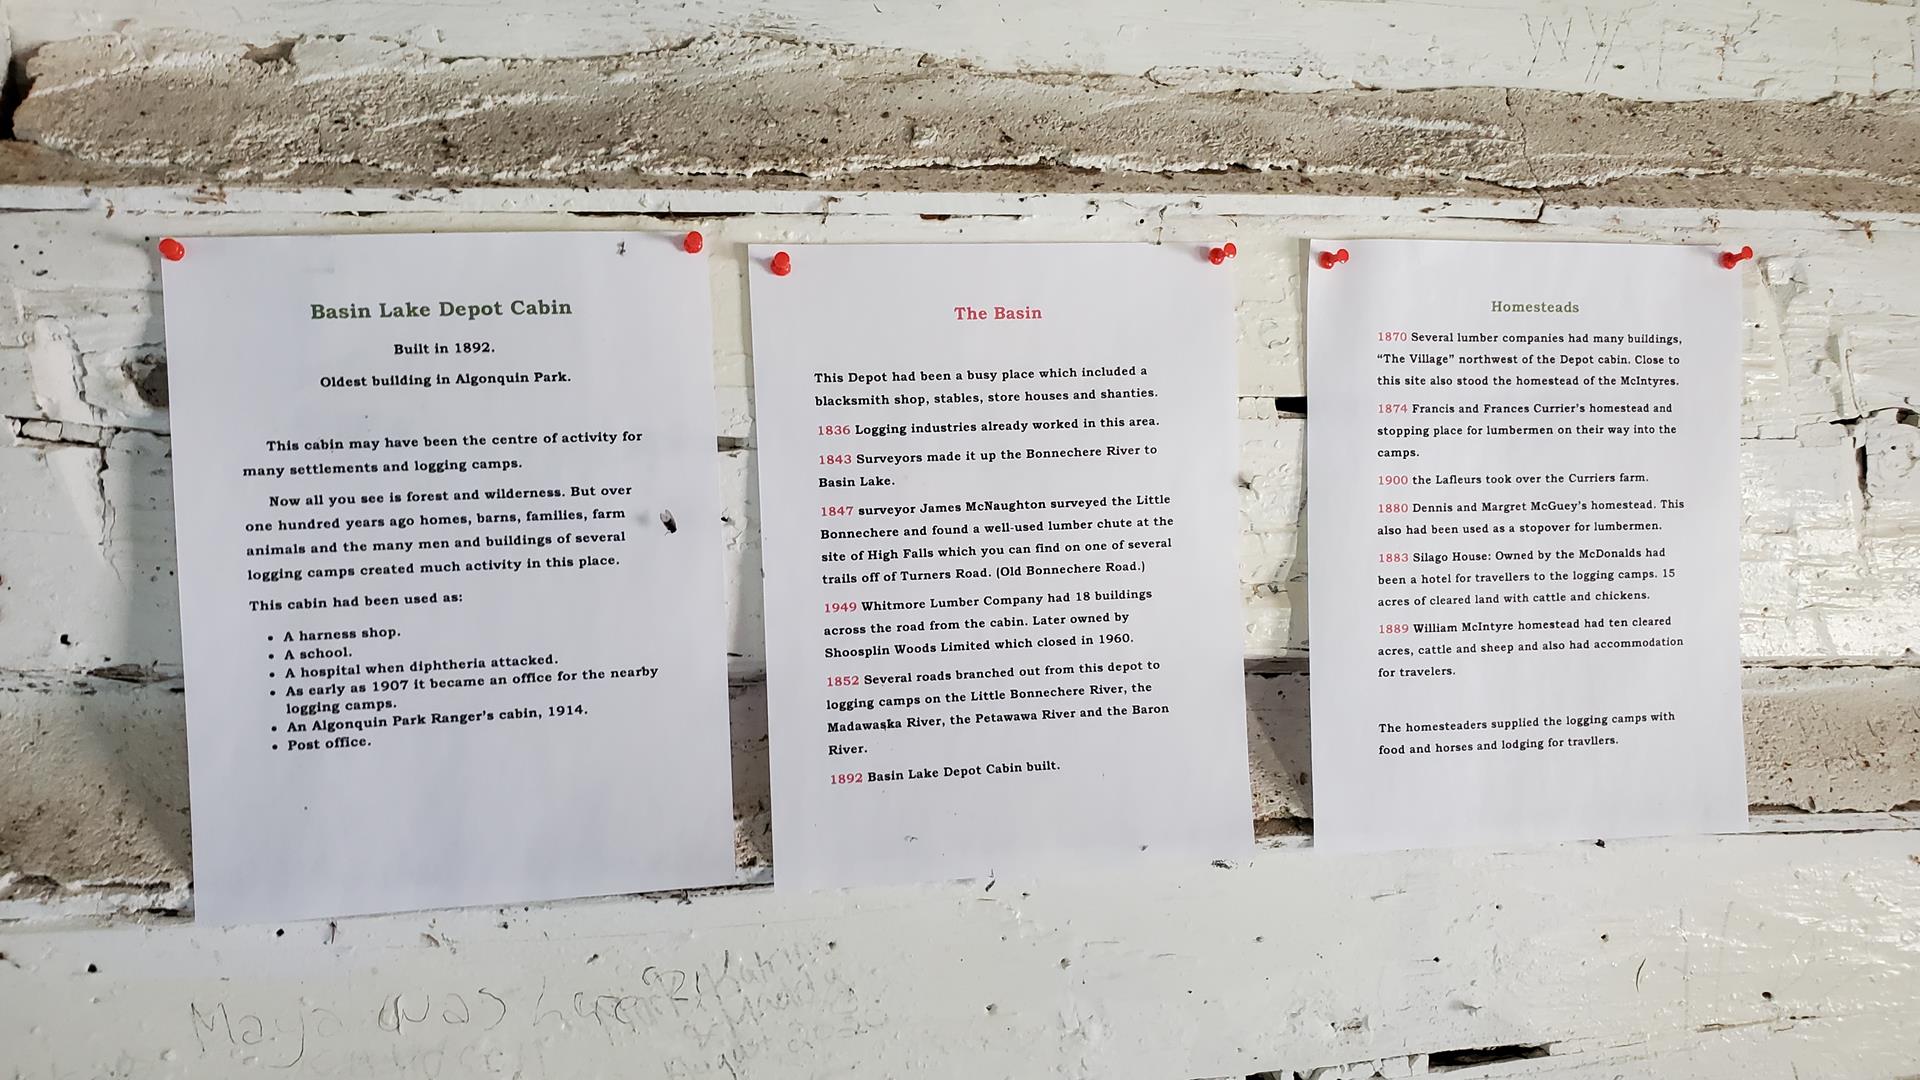 Basin Lake Depot Cabin
Built in 1892.
Oldest building in Algonquin Park.
This cabin may have been the centre of activity for
many settlements and logging camps.
Now all you see is forest and wilderness. But over
one hundred years ago homes, barns, families, farm
animals and the many men and buildings of several
logging camps created much activity in this place.
This cabin had been used as:
• A harness shop.
• A school.
• A hospital when diphtheria attacked.
• As early as 1907 it became an office for the nearby
logging camps.
• An Algonquin Park Ranger's cabin, 1914.
• Post office.
The Basin
This Depot had been a busy place which included a
blacksmith shop, stables, store houses and shanties.
1836 Logging industries already worked in this area.
1843 Surveyors made it up the Bonnechere River to
Basin Lake.
1847 surveyor James McNaughton surveyed the Little
Bonnechere and found a well-used lumber chute at the
site of High Falls which you can find on one of several
trails off of Turners Road. (Old Bonnechere Road.)
1949 Whitmore Lumber Company had 18 buildings
across the road from the cabin. Later owned by
Shoosplin Woods Limited which closed in 1960.
1852 Several roads branched out from this depot to
logging camps on the Little Bonnechere River, the
Madawaska River, the Petawawa River and the Baron
River.
1892 Basin Lake Depot Cabin built.
Homesteads
1870 Several lumber companies had many buildings,
“The Village” northwest of the Depot cabin. Close to
this site also stood the homestead of the McIntyres.
1874 Francis and Frances Currier's homestead and
stopping place for lumbermen on their way into the
camps.
1900 the Lafleurs took over the Curriers farm.
1880 Dennis and Margret McGuey's homestead. This
also had been used as a stopover for lumbermen.
1883 Silago House: Owned by the McDonalds had
been a hotel for travellers to the logging camps. 15
acres of cleared land with cattle and chickens.
1889 William McIntyre homestead had ten cleared
acres, cattle and sheep and also had accommodation
for travelers.
The homesteaders supplied the logging camps with
food and horses and lodging for travllers.
Maya was here
August